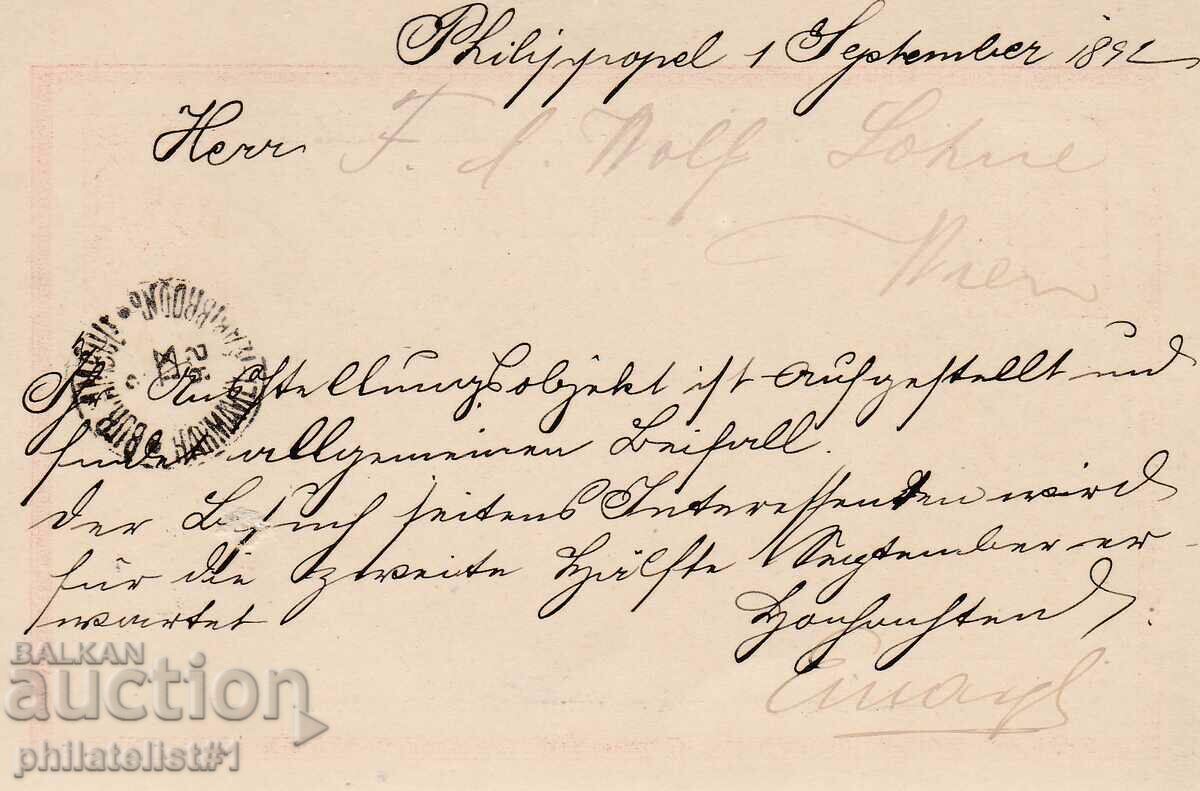 Philippopel 1 September 1892
Herr F. d. Wolf Söhne
Wien
Ihr Ausstellungsobjekt ist aufgestellt und
findet allgemeinen Beifall.
Der Besuch seitens Interessenten wird
für die zweite Hälfte September er-
wartet
Hochachtend
BALKAN
auction
philatelist#1